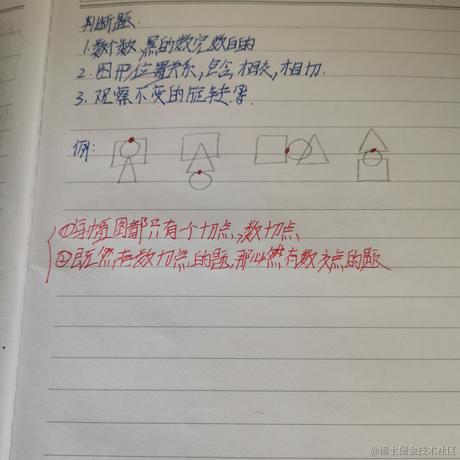 判断题.
1.数个数,黑的数完数白的
2.图形位置关系,包含,相交,相切.
3.观察不变的旋转啥.
例:
①每幅图都只有一个切点,数切点
②既然有数切点的题,那必然有数交点的题
@稀土掘金技术社区